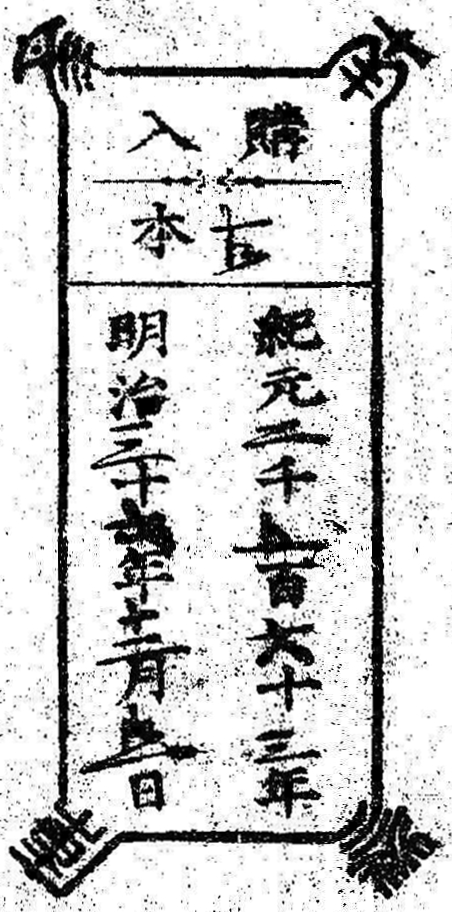 購入
古本
紀元二千五百六十三年
明治三十六年十二月五日